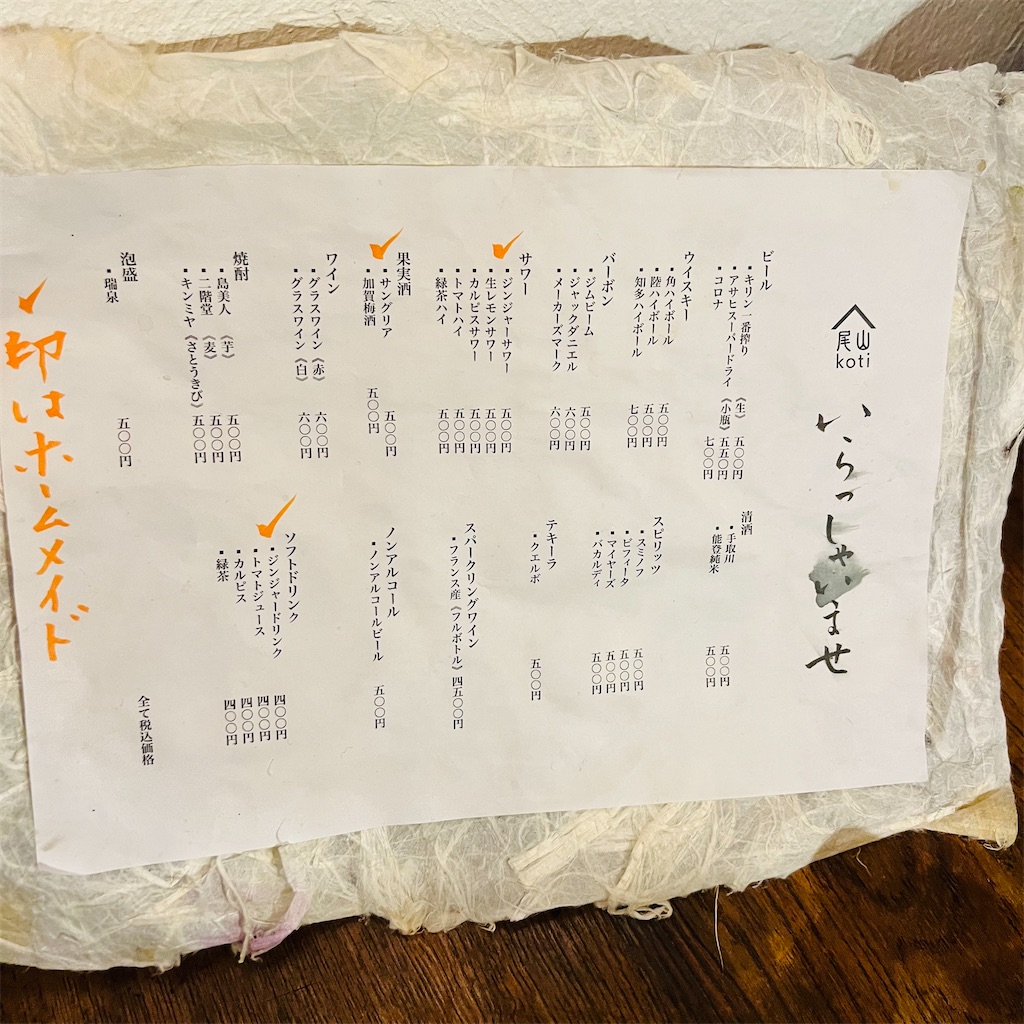 尾山
koti
いらっしゃいませ
ビール
・キリン一番搾り 《生》 五〇〇円
・アサヒスーパードライ 《小瓶》 五五〇円
・コロナ 七〇〇円
ウイスキー
・角ハイボール 五〇〇円
・陸ハイボール 五〇〇円
・知多ハイボール 七〇〇円
バーボン
・ジムビーム 五〇〇円
・ジャックダニエル 六〇〇円
・メーカーズマーク 六〇〇円
サワー
✓・ジンジャーサワー 五〇〇円
・生レモンサワー 五〇〇円
・カルピスサワー 五〇〇円
・トマトハイ 五〇〇円
・緑茶ハイ 五〇〇円
果実酒
✓・サングリア 五〇〇円
・加賀梅酒 五〇〇円
ワイン
・グラスワイン《赤》 六〇〇円
・グラスワイン《白》 六〇〇円
焼酎
・島美人 《芋》 五〇〇円
・二階堂 《麦》 五〇〇円
・キンミヤ《さとうきび》 五〇〇円
泡盛
・瑞泉 五〇〇円
清酒
・手取川 五〇〇円
・能登純米 五〇〇円
スピリッツ
・スミノフ 五〇〇円
・ビフィータ 五〇〇円
・マイヤーズ 五〇〇円
・バカルディ 五〇〇円
テキーラ
・クエルボ 五〇〇円
スパークリングワイン
・フランス産《フルボトル》 四五〇〇円
ノンアルコール
・ノンアルコールビール 五〇〇円
ソフトドリンク
✓・ジンジャードリンク 四〇〇円
・トマトジュース 四〇〇円
・カルピス 四〇〇円
・緑茶 四〇〇円
全て税込価格
✓印はホームメイド